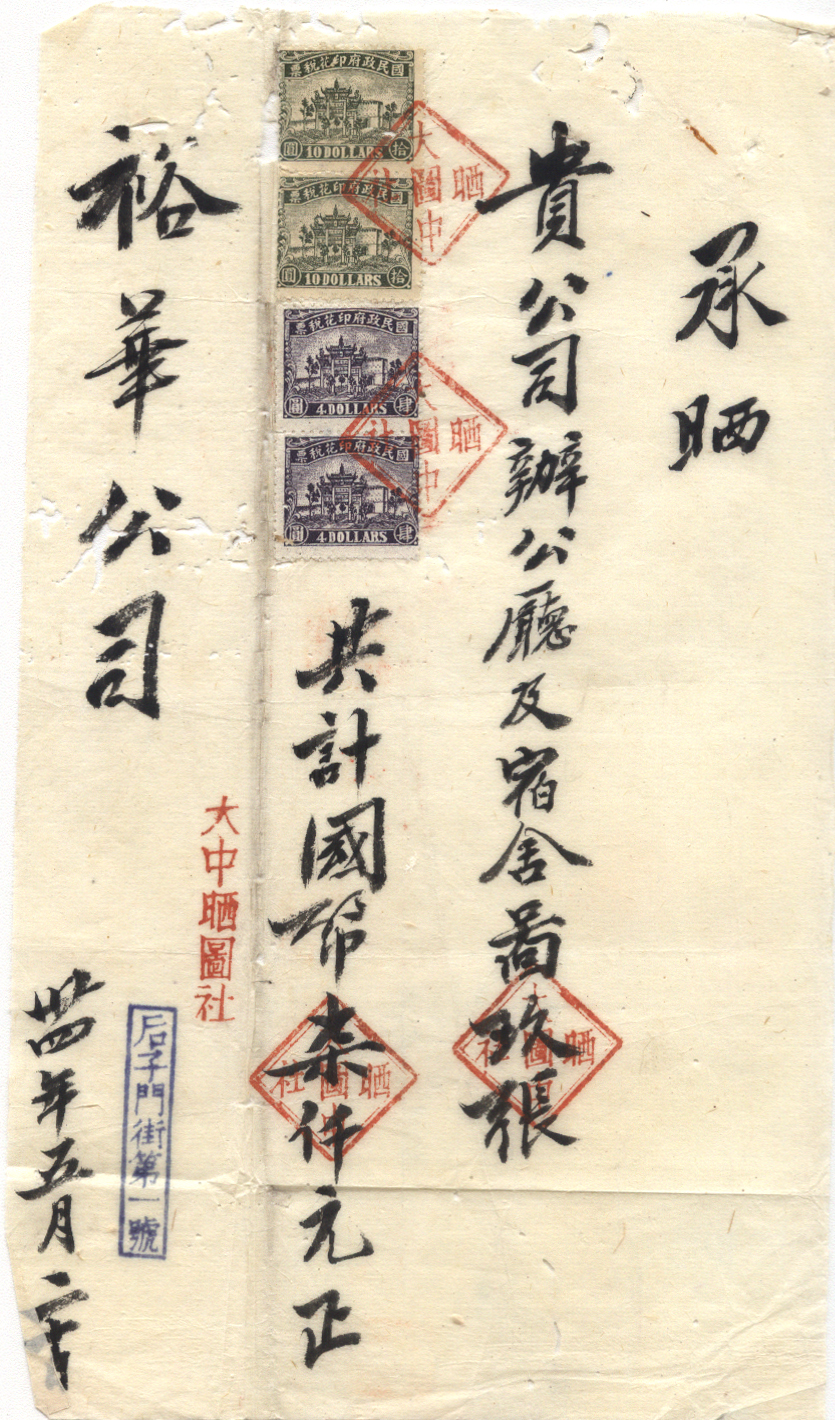 承晒
貴公司辦公廳及宿舍啚玖張
共計國幣柒仟元正
國民政府印花稅票
圓 10 DOLLARS 拾
國民政府印花稅票
圓 10 DOLLARS 拾
國民政府印花稅票
圓 4 DOLLARS 肆
國民政府印花稅票
圓 4 DOLLARS 肆
大中晒圖社
大中晒圖社
大中晒圖社
大中晒圖社
裕華公司
大中晒圖社
后子門街第一號
卅四年五月二